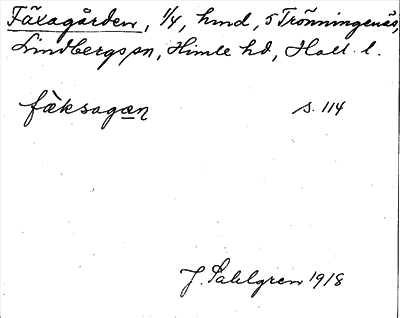 Fäxagården, 1/4, hmd, 5 Trönningenäs,
Lindbergs sn, Himle hd, Hall. l.
fæ̀ksagan s. 114
J. Sahlgren 1918